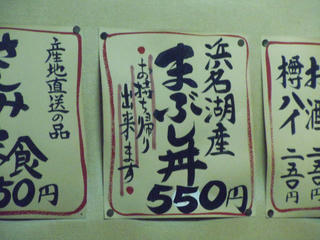 浜名湖産
まぶし丼
お持ち帰り
出来ます
550円
お酒
樽ハイ
二五〇円
産地直送の品
さしみ定食
50円